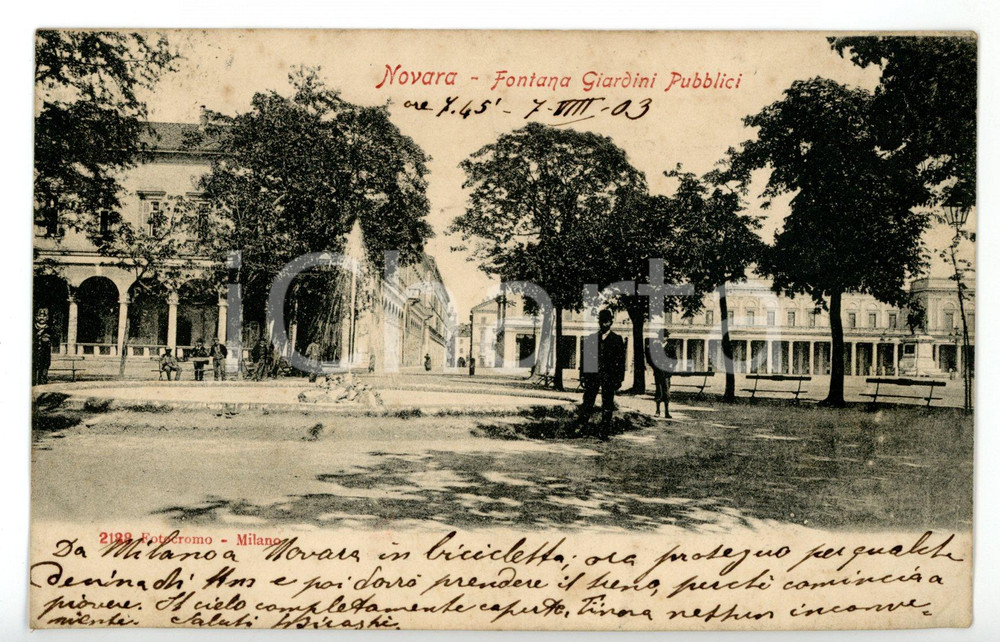 Novara - Fontana Giardini Pubblici
ore 7.45' - 7-VIII-03
iCharta
2188 Fotocromo - Milano
Da Milano a Novara in bicicletta; ora proseguo per qualche
decina di Km e poi dovrò prendere il treno, perchè comincia a
piovere. Il cielo completamente coperto. Finora nessun inconve-
nienti. Saluti